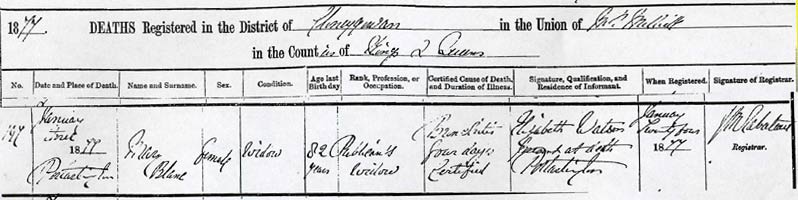 1877 DEATHS Registered in the District of Cloneygowan in the Union of Mt. Mellick
in the Counties of Kings & Queens
No. Date and Place of Death. Name and Surname. Sex. Condition. Age last Birthday Rank, Profession, or Occupation. Certified Cause of Death, and Duration of Illness. Signature, Qualification, and Residence of Informant. When Registered. Signature of Registrar.
197
January
third
1877
Portarlington
Ellen
Blane
female
Widow
82
years
Publican's
Widow
Bronchitis
four days
Certified
Elizabeth Watson
Present at death
Portarlington
January
Twenty four
1877
Registrar.